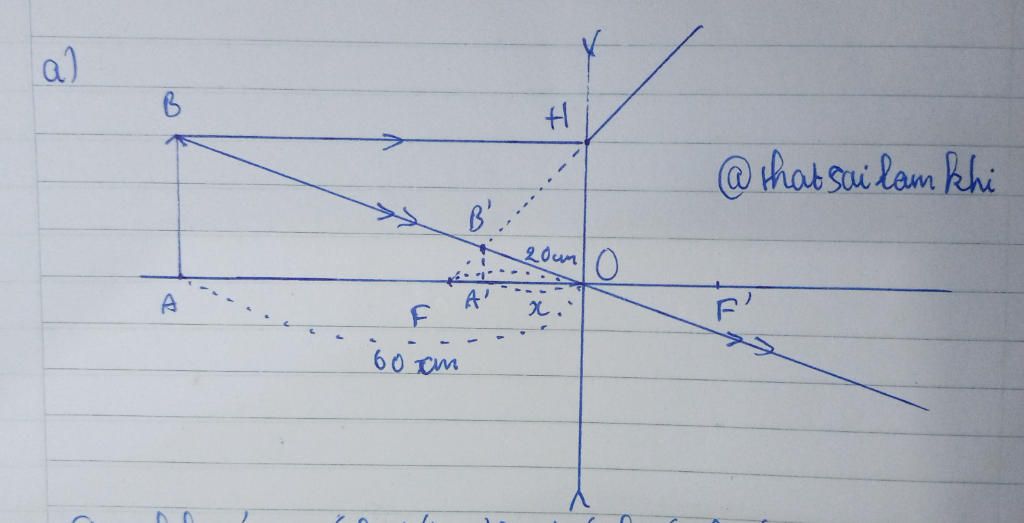 a)
B
H
@thatsailamkhi
B'
20cm
O
A
F
A'
x
F'
60 cm